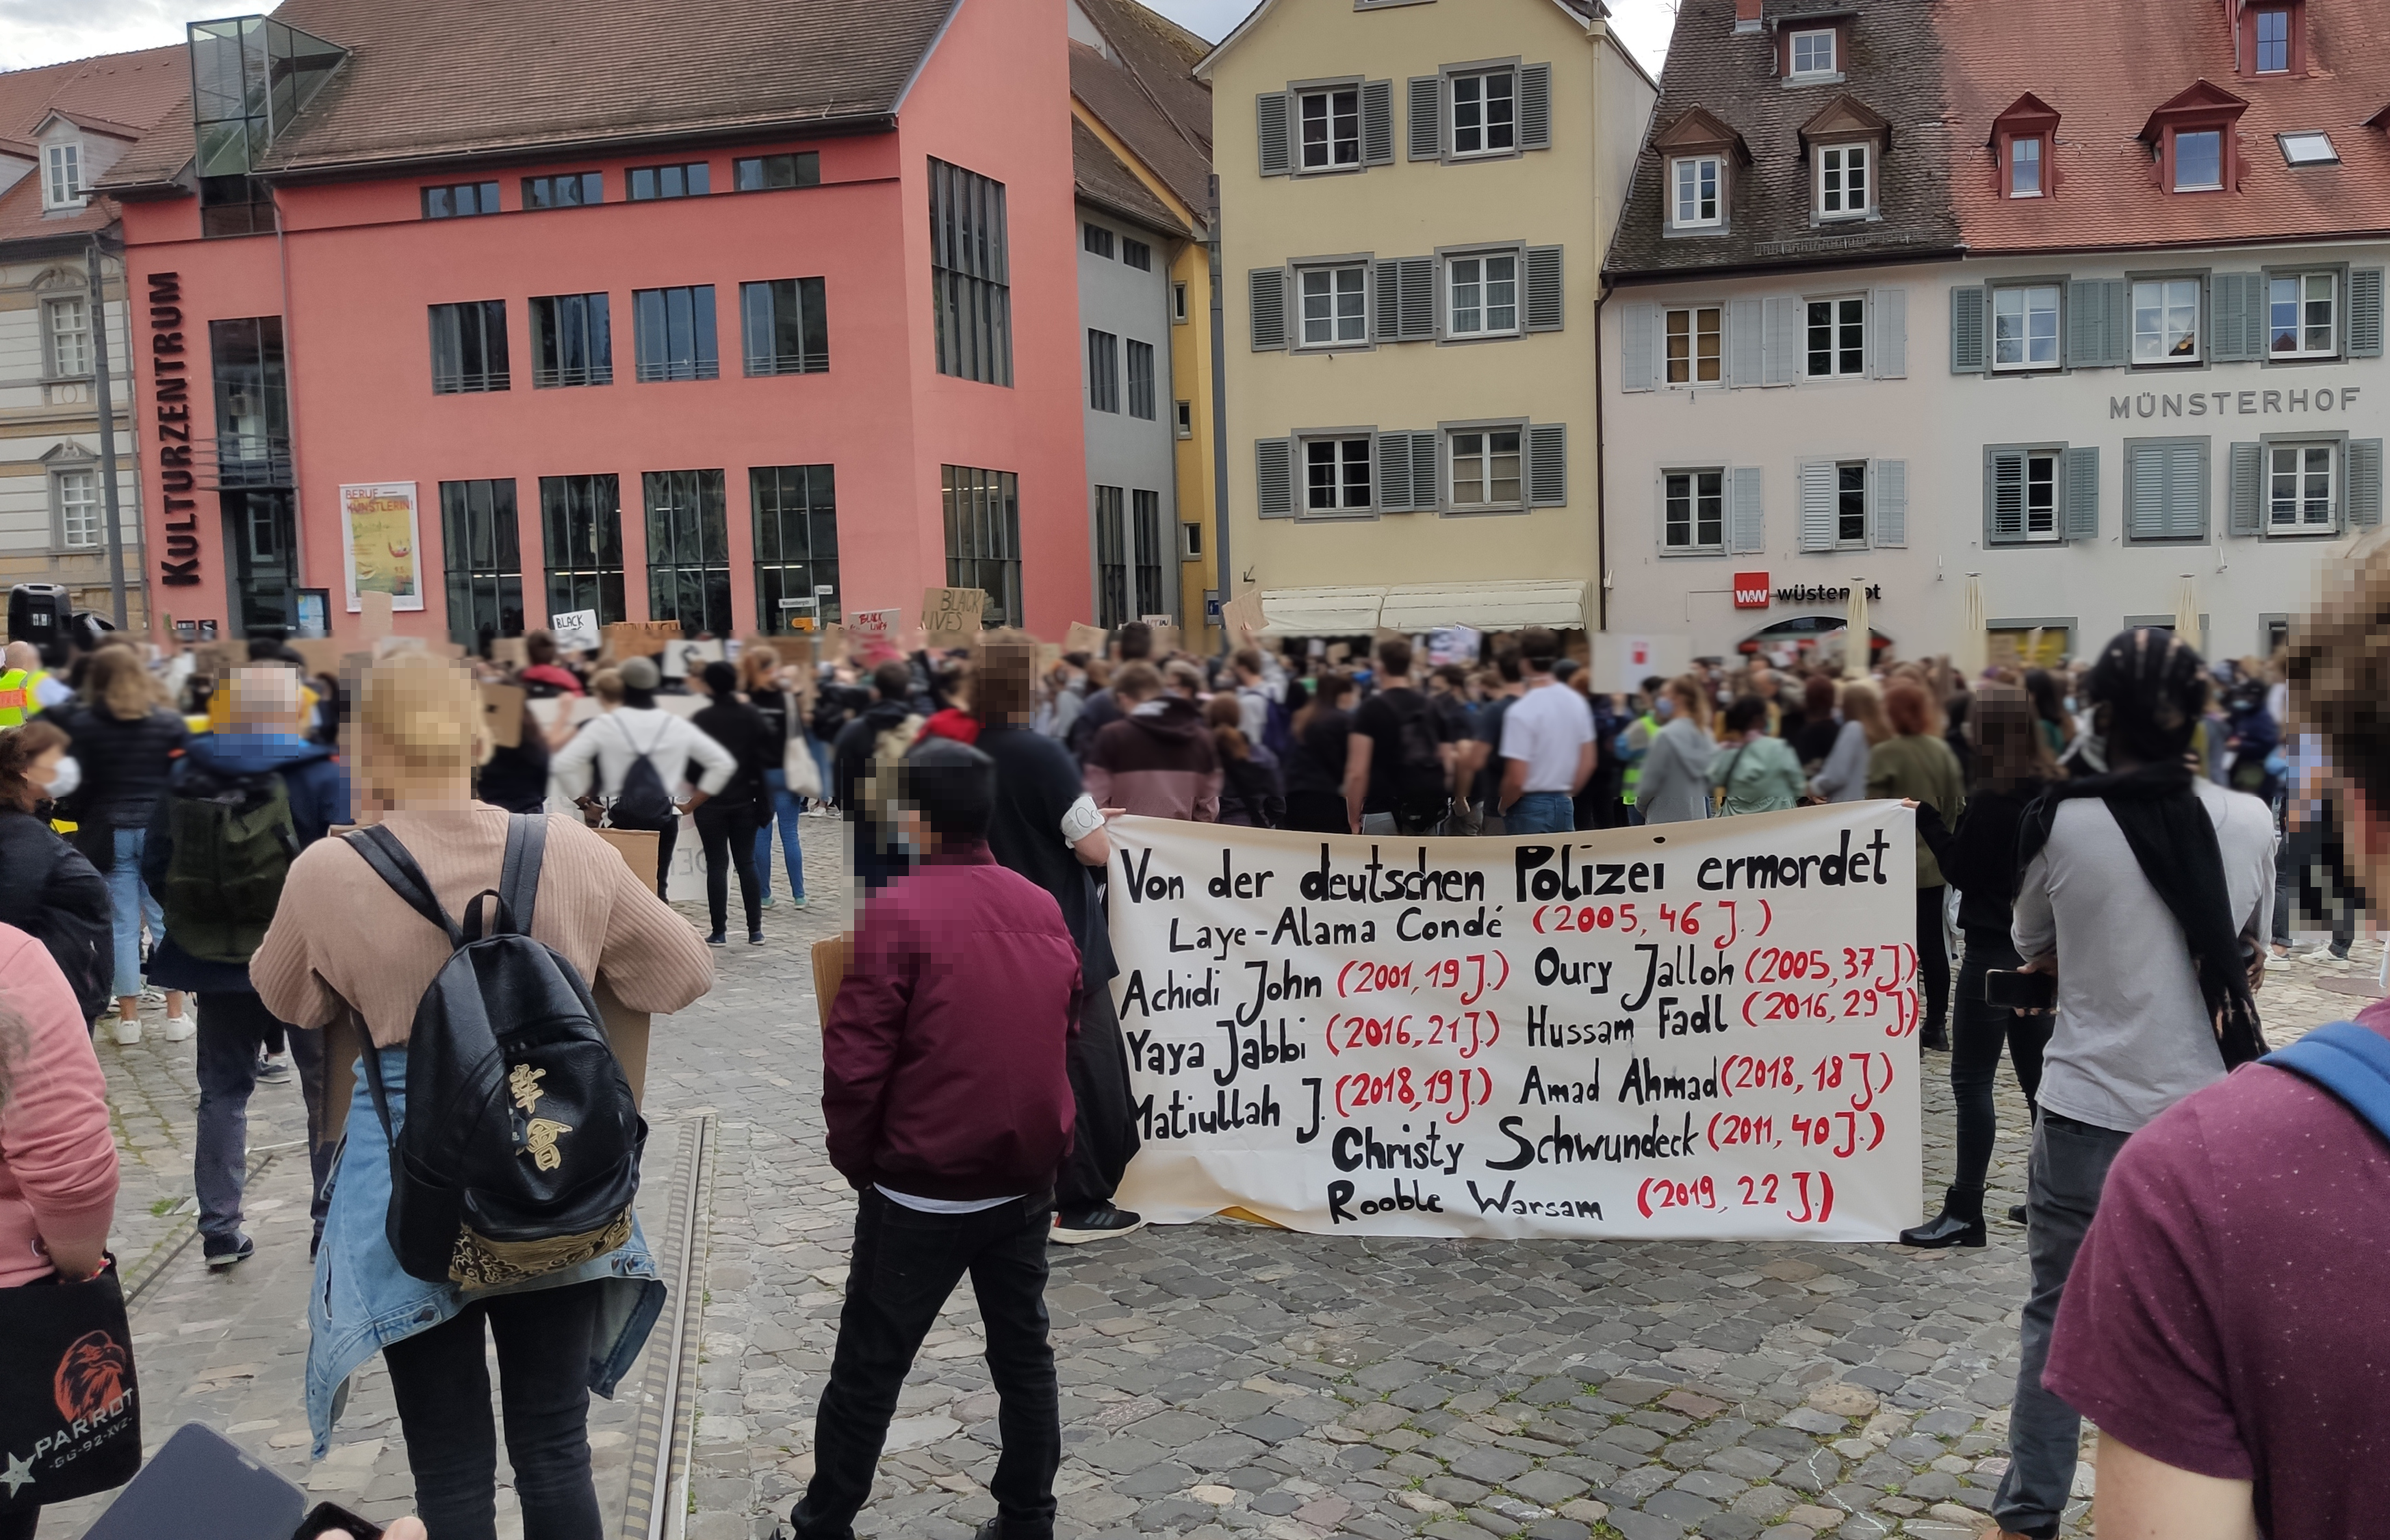 KULTURZENTRUM
MÜNSTERHOF
BERUF
KÜNSTLERIN!
W&W wüstenrot
BLACK
BLACK
LIVES
BLACK
Von der deutschen Polizei ermordet
Laye-Alama Condé (2005, 46 J.)
Achidi John (2001, 19 J.) Oury Jalloh (2005, 37 J.)
Yaya Jabbi (2016, 21 J.) Hussam Fadl (2016, 29 J.)
Matiullah J. (2018, 19 J.) Amad Ahmad (2018, 18 J.)
Christy Schwundeck (2011, 40 J.)
Rooble Warsam (2019, 22 J.)
PARROT
-GG-92-XVZ-